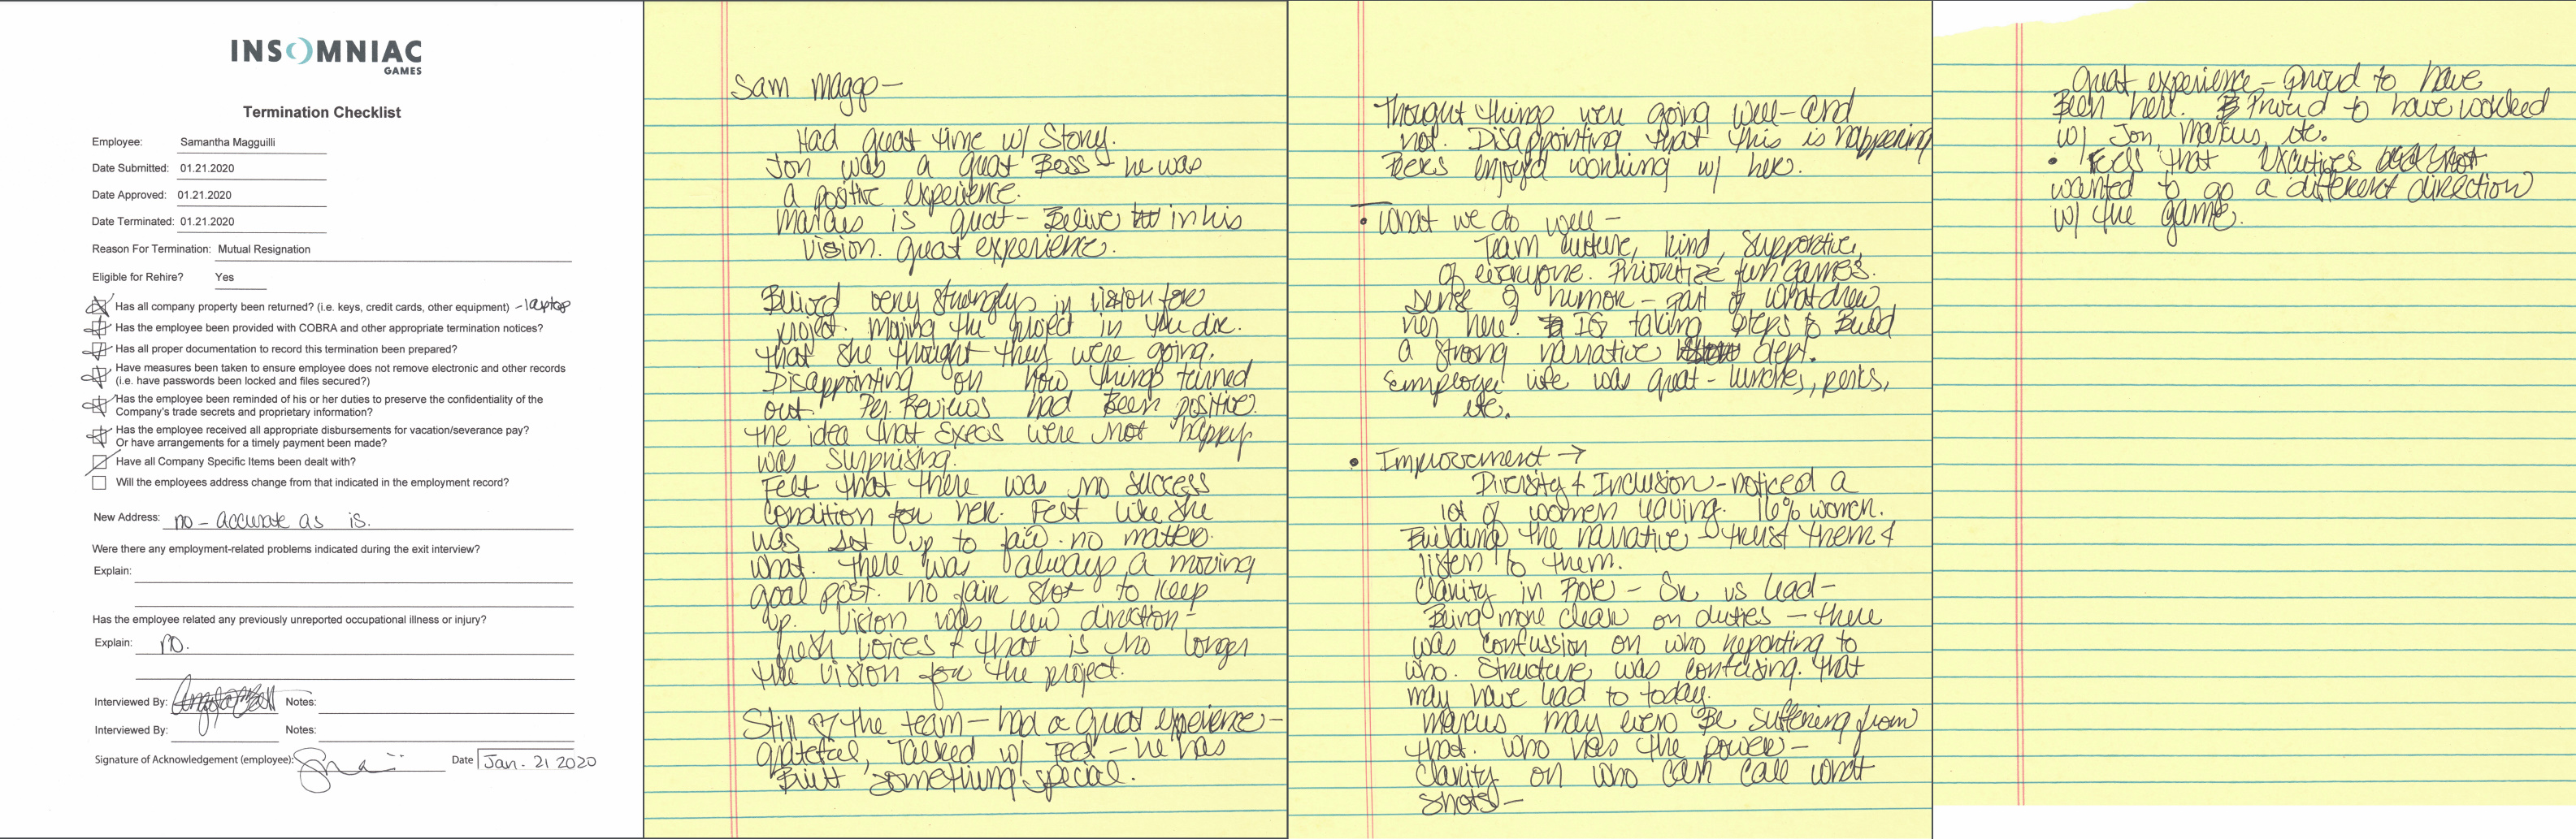 INSOMNIAC
GAMES
Termination Checklist
Employee: Samantha Magguilli
Date Submitted: 01.21.2020
Date Approved: 01.21.2020
Date Terminated: 01.21.2020
Reason For Termination: Mutual Resignation
Eligible for Rehire? Yes
Has all company property been returned? (i.e. keys, credit cards, other equipment) - laptop
Has the employee been provided with COBRA and other appropriate termination notices?
Has all proper documentation to record this termination been prepared?
Have measures been taken to ensure employee does not remove electronic and other records
(i.e. have passwords been locked and files secured?)
Has the employee been reminded of his or her duties to preserve the confidentiality of the
Company's trade secrets and proprietary information?
Has the employee received all appropriate disbursements for vacation/severance pay?
Or have arrangements for a timely payment been made?
Have all Company Specific Items been dealt with?
Will the employees address change from that indicated in the employment record?
New Address: no - accurate as is.
Were there any employment-related problems indicated during the exit interview?
Explain:
Has the employee related any previously unreported occupational illness or injury?
Explain: no.
Interviewed By: Notes:
Interviewed By: Notes:
Signature of Acknowledgement (employee): Date Jan. 21 2020
Sam Maggo -
Had great time w/ Story.
Jon was a great Boss - he was
a positive experience.
Marcus is great - Belive in his
vision. great experience.
Belived very strongly in vision for
project. Moving the project in the dir.
that she thought they were going.
Disappointing on how things turned
out. Per. Reviews had Been positive.
the idea that Execs were not happy
was surprising.
Felt that there was no success
condition for her. Felt like she
was set up to fail. no matter
what. there was always a moving
goal post. no fair shot to keep
up. Vision was new direction -
fresh voices & that is no longer
the vision for the project.
Still ♡ the team - had a great experience -
grateful, Talked w/ Ted - he has
Built something special.
Thought things were going well - and
not. Disappointing that this is happening
Peers enjoyed working w/ her.
• What we do well -
Team culture, kind, supportive,
of everyone. Prioritize fun games.
sense of humor - part of what drew
her here. IG taking steps to Build
a strong narrative dept.
Employee life was great - lunches, perks,
etc.
• Improvement →
Diversity & Inclusion - noticed a
lot of women leaving. 16% women.
Building the narrative - trust them &
listen to them.
Clarity in Role - Sr vs lead -
Being more clear on duties - there
was confussion on who reporting to
who. Structure was confusing. that
may have lead to today.
Marcus may even Be suffering from
that. who has the power -
clarity on who can call what
shots -
great experience - proud to have
Been here. Proud to have worked
w/ Jon, Marcus, etc.
• Feels that Excutives
wanted to go a different direction
w/ the game.